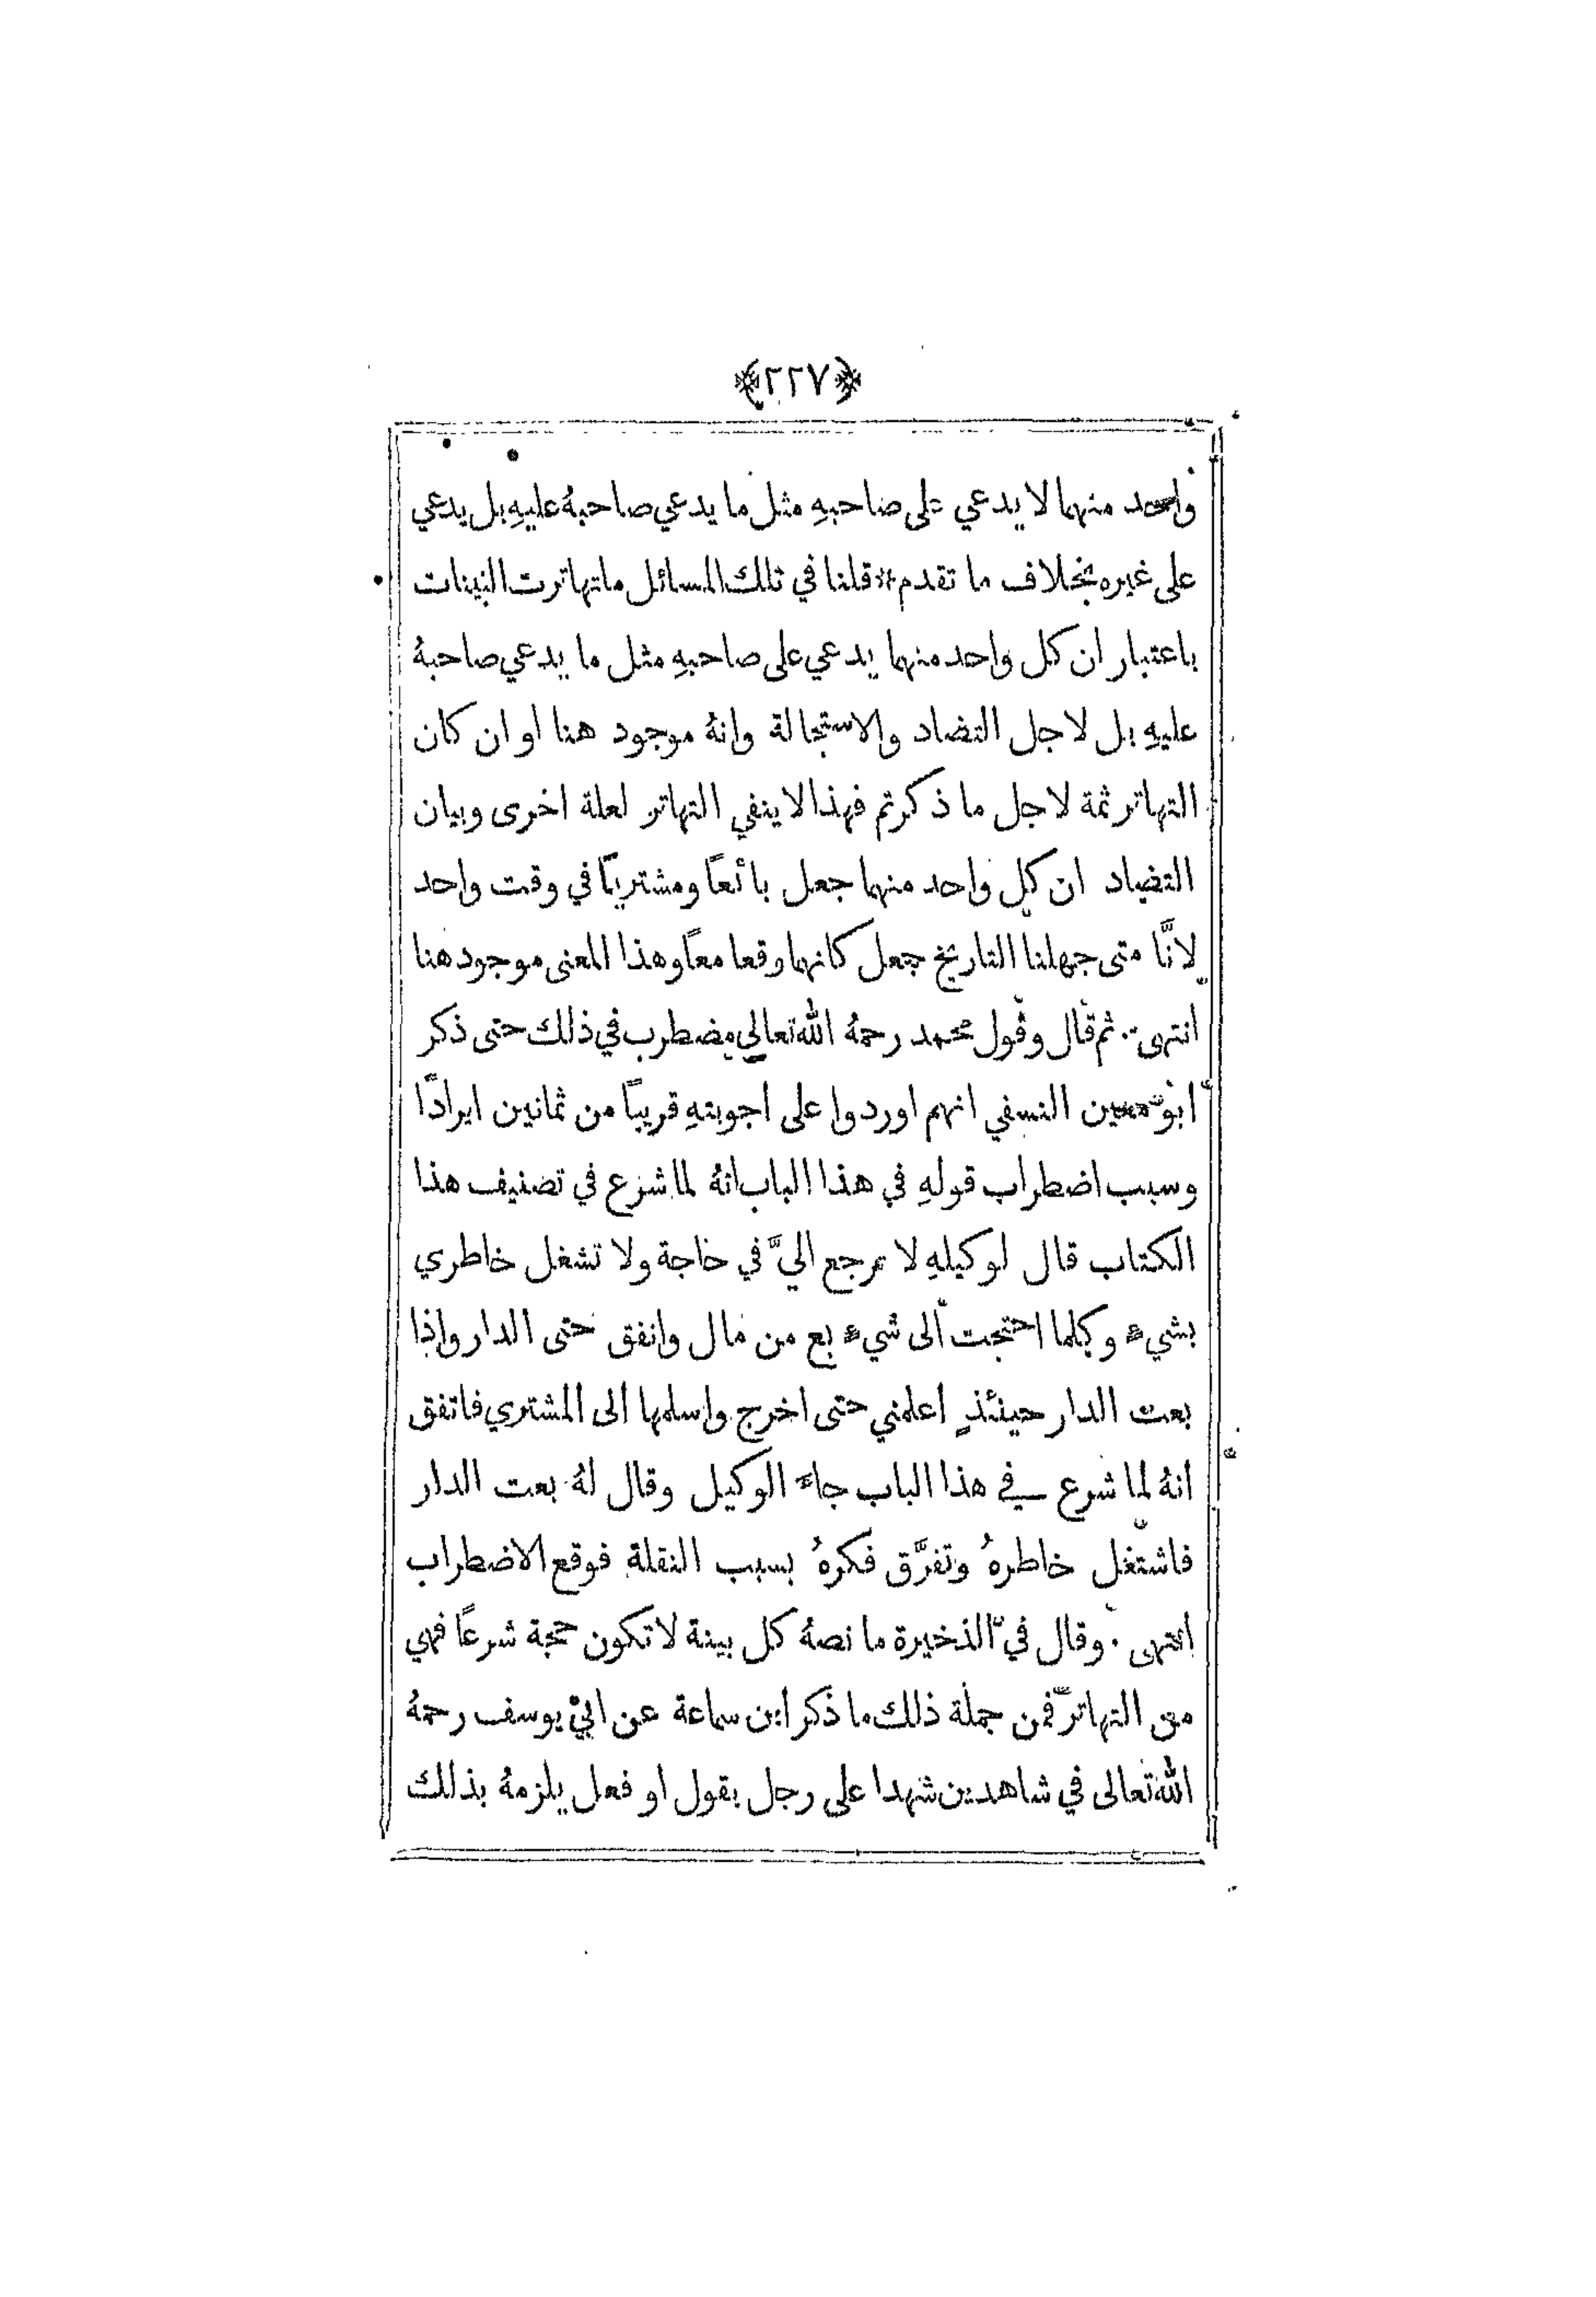 ﴿٢٢٧﴾
واحد منهما لا يدعي على صاحبهِ مثل ما يدعي صاحبهُ عليهِ بل يدعي
على غيره بخلاف ما تقدم * قلنا في تلك المسائل ما تهاترت البينات
باعتبار ان كل واحد منهما يدعي على صاحبهِ مثل ما يدعي صاحبهُ
عليهِ بل لاجل التضاد والاستحالة وانهُ موجود هنا او ان كان
التهاتر ثمة لاجل ما ذكرتم فهذا لا ينفي التهاتر لعلة اخرى وبيان
التضاد ان كل واحد منهما جعل بائعًا ومشتريًا في وقت واحد
لانَّا متى جهلنا التاريخ جعل كانهما وقعا معًا وهذا المعنى موجود هنا
انتهى . ثم قال وقول محمد رحمهُ الله تعالى مضطرب في ذلك حتى ذكر
ابو معين النسفي انهم اوردوا على اجوبتهِ قريبًا من ثمانين ايرادًا
وسبب اضطراب قولهِ في هذا الباب انهُ لما شرع في تصنيف هذا
الكتاب قال لوكيلهِ لا ترجع اليَّ في حاجة ولا تشغل خاطري
بشيء وكلما احتجت الى شيء بع من مال وانفق حتى الدار واذا
بعت الدار حينئذٍ اعلمني حتى اخرج واسلمها الى المشتري فاتفق
انهُ لما شرع في هذا الباب جاء الوكيل وقال لهُ بعت الدار
فاشتغل خاطرهُ وتفرَّق فكرهُ بسبب النقلة فوقع الاضطراب
انتهى . وقال في الذخيرة ما نصهُ كل بينة لا تكون حجة شرعًا فهي
من التهاتر فمن جملة ذلك ما ذكر ابن سماعة عن ابي يوسف رحمهُ
الله تعالى في شاهدين شهدا على رجل بقول او فعل يلزمهُ بذلك